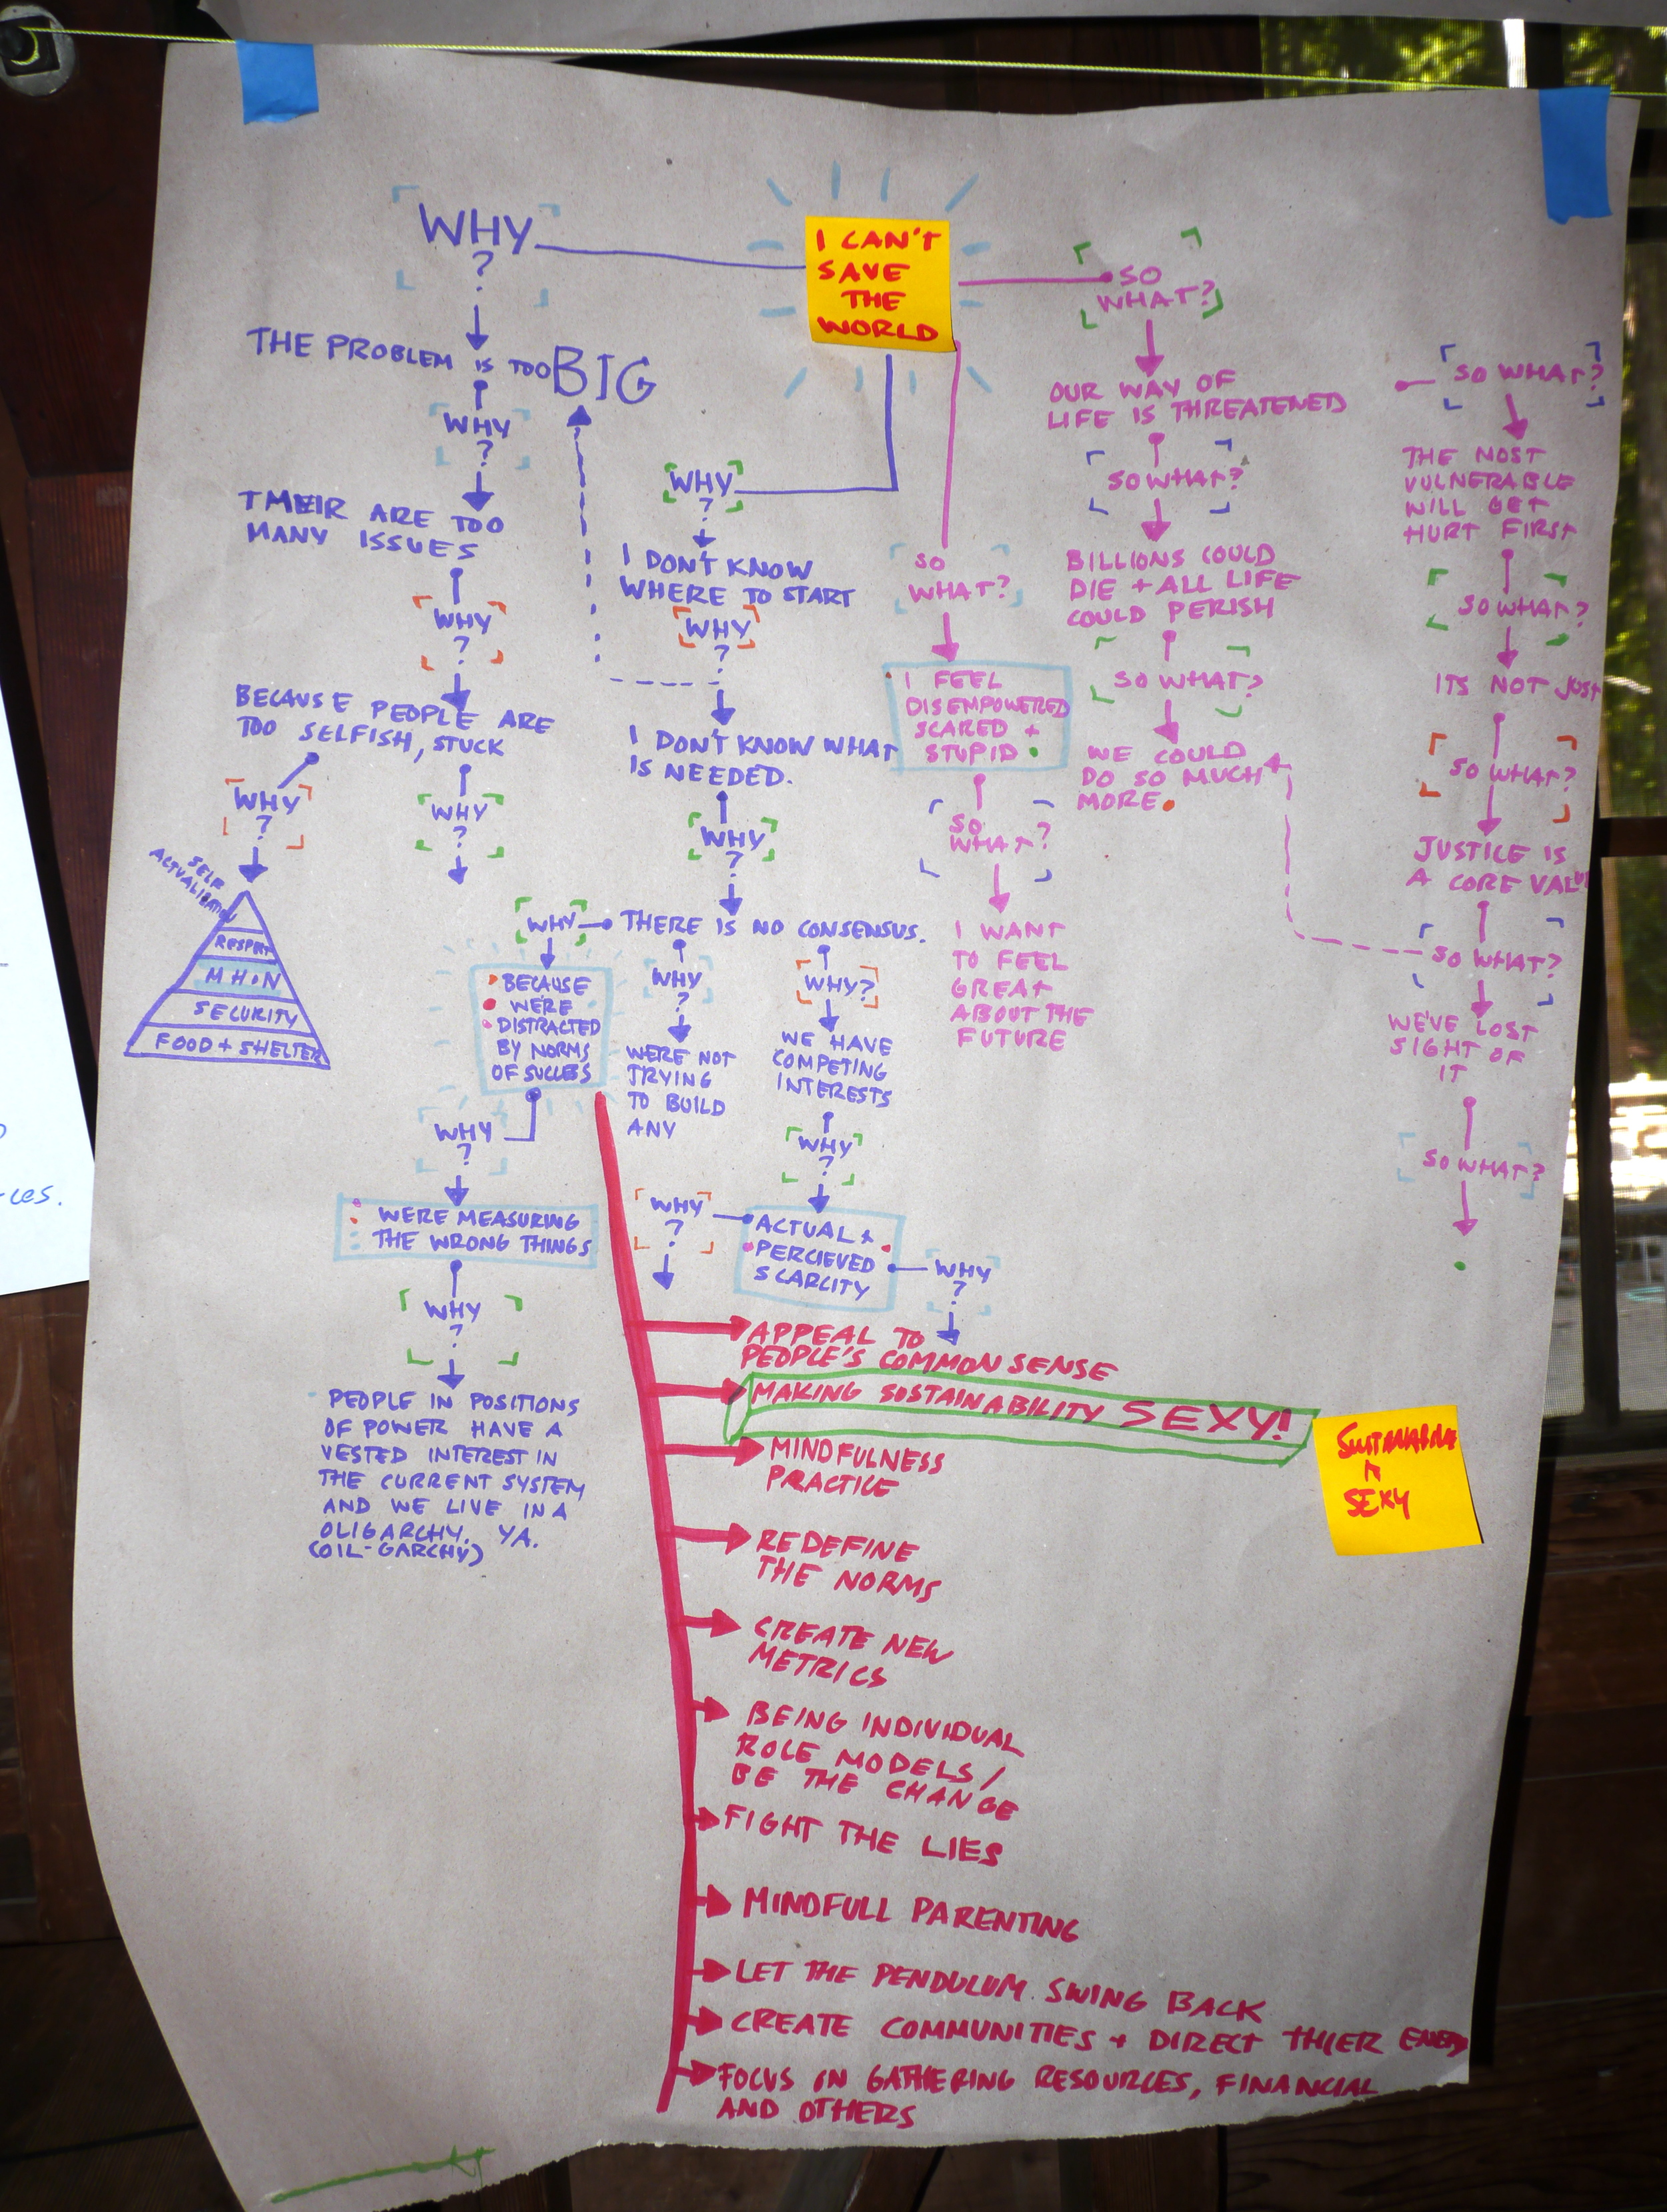 I CAN'T
SAVE
THE
WORLD
WHY
?
THE PROBLEM IS TOO BIG
WHY
?
THEIR ARE TOO
MANY ISSUES
WHY
?
BECAUSE PEOPLE ARE
TOO SELFISH, STUCK
WHY
?
SELF
ACTUALIZATION
RESPECT
SECURITY
FOOD + SHELTER
WHY
?
WHY
?
I DON'T KNOW
WHERE TO START
WHY
?
I DON'T KNOW WHAT
IS NEEDED.
WHY
?
THERE IS NO CONSENSUS.
WHY
BECAUSE
WE'RE
DISTRACTED
BY NORMS
OF SUCCESS
WHY
?
WERE MEASURING
THE WRONG THINGS
WHY
?
PEOPLE IN POSITIONS
OF POWER HAVE A
VESTED INTEREST IN
THE CURRENT SYSTEM
AND WE LIVE IN A
OLIGARCHY. YA.
(OIL-GARCHY)
WHY
?
WERE NOT
TRYING
TO BUILD
ANY
WHY?
WE HAVE
COMPETING
INTERESTS
WHY
?
ACTUAL +
PERCIEVED
SCARCITY
WHY
?
WHY
?
SO
WHAT?
I FEEL
DISEMPOWERED
SCARED +
STUPID
SO
WHAT?
I WANT
TO FEEL
GREAT
ABOUT THE
FUTURE
SO
WHAT?
OUR WAY OF
LIFE IS THREATENED
SO WHAT?
BILLIONS COULD
DIE + ALL LIFE
COULD PERISH
SO WHAT?
WE COULD
DO SO MUCH
MORE.
SO WHAT?
THE MOST
VULNERABLE
WILL GET
HURT FIRST
SO WHAT?
ITS NOT JUST
SO WHAT?
JUSTICE IS
A CORE VALUE
SO WHAT?
WE'VE LOST
SIGHT OF
IT
SO WHAT?
APPEAL TO
PEOPLE'S COMMON SENSE
MAKING SUSTAINABILITY SEXY!
MINDFULNESS
PRACTICE
REDEFINE
THE NORMS
CREATE NEW
METRICS
BEING INDIVIDUAL
ROLE MODELS /
BE THE CHANGE
FIGHT THE LIES
MINDFULL PARENTING
LET THE PENDULUM SWING BACK
CREATE COMMUNITIES + DIRECT THIER
FOCUS ON GATHERING RESOURCES, FINANCIAL
AND OTHERS
SEXY